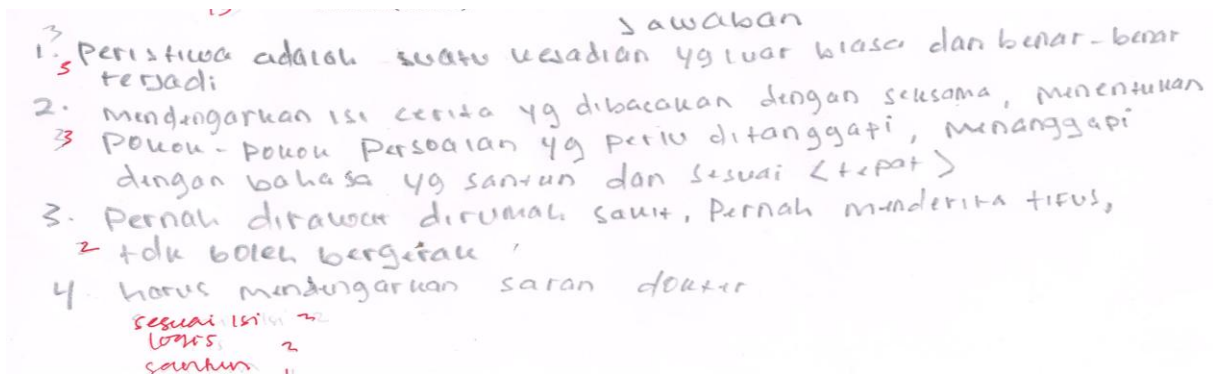 Jawaban
3
1. Peristiwa adalah suatu kejadian yg luar biasa dan benar-benar
5 terjadi
2. mendengarkan isi cerita yg dibacakan dengan seksama, menentukan
3 pokok-pokok persoalan yg perlu ditanggapi, menanggapi
dengan bahasa yg santun dan sesuai <tepat>
3. Pernah dirawat dirumah sakit, Pernah menderita tifus,
2 tdk boleh bergerak
4. harus mendengarkan saran dokter
sesuai isi
logis 2
santun